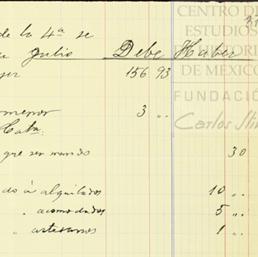 de la 4ª se
Julio Debe Haber
156 93
menor 3 ..
que ser mando 30
do à alquilados 10 ..
" acomodados 5 ..
" artesanos 1 ..
CENTRO DE
ESTUDIOS
DE HISTORIA
DE MÉXICO
FUNDACIÓN
Carlos Slim